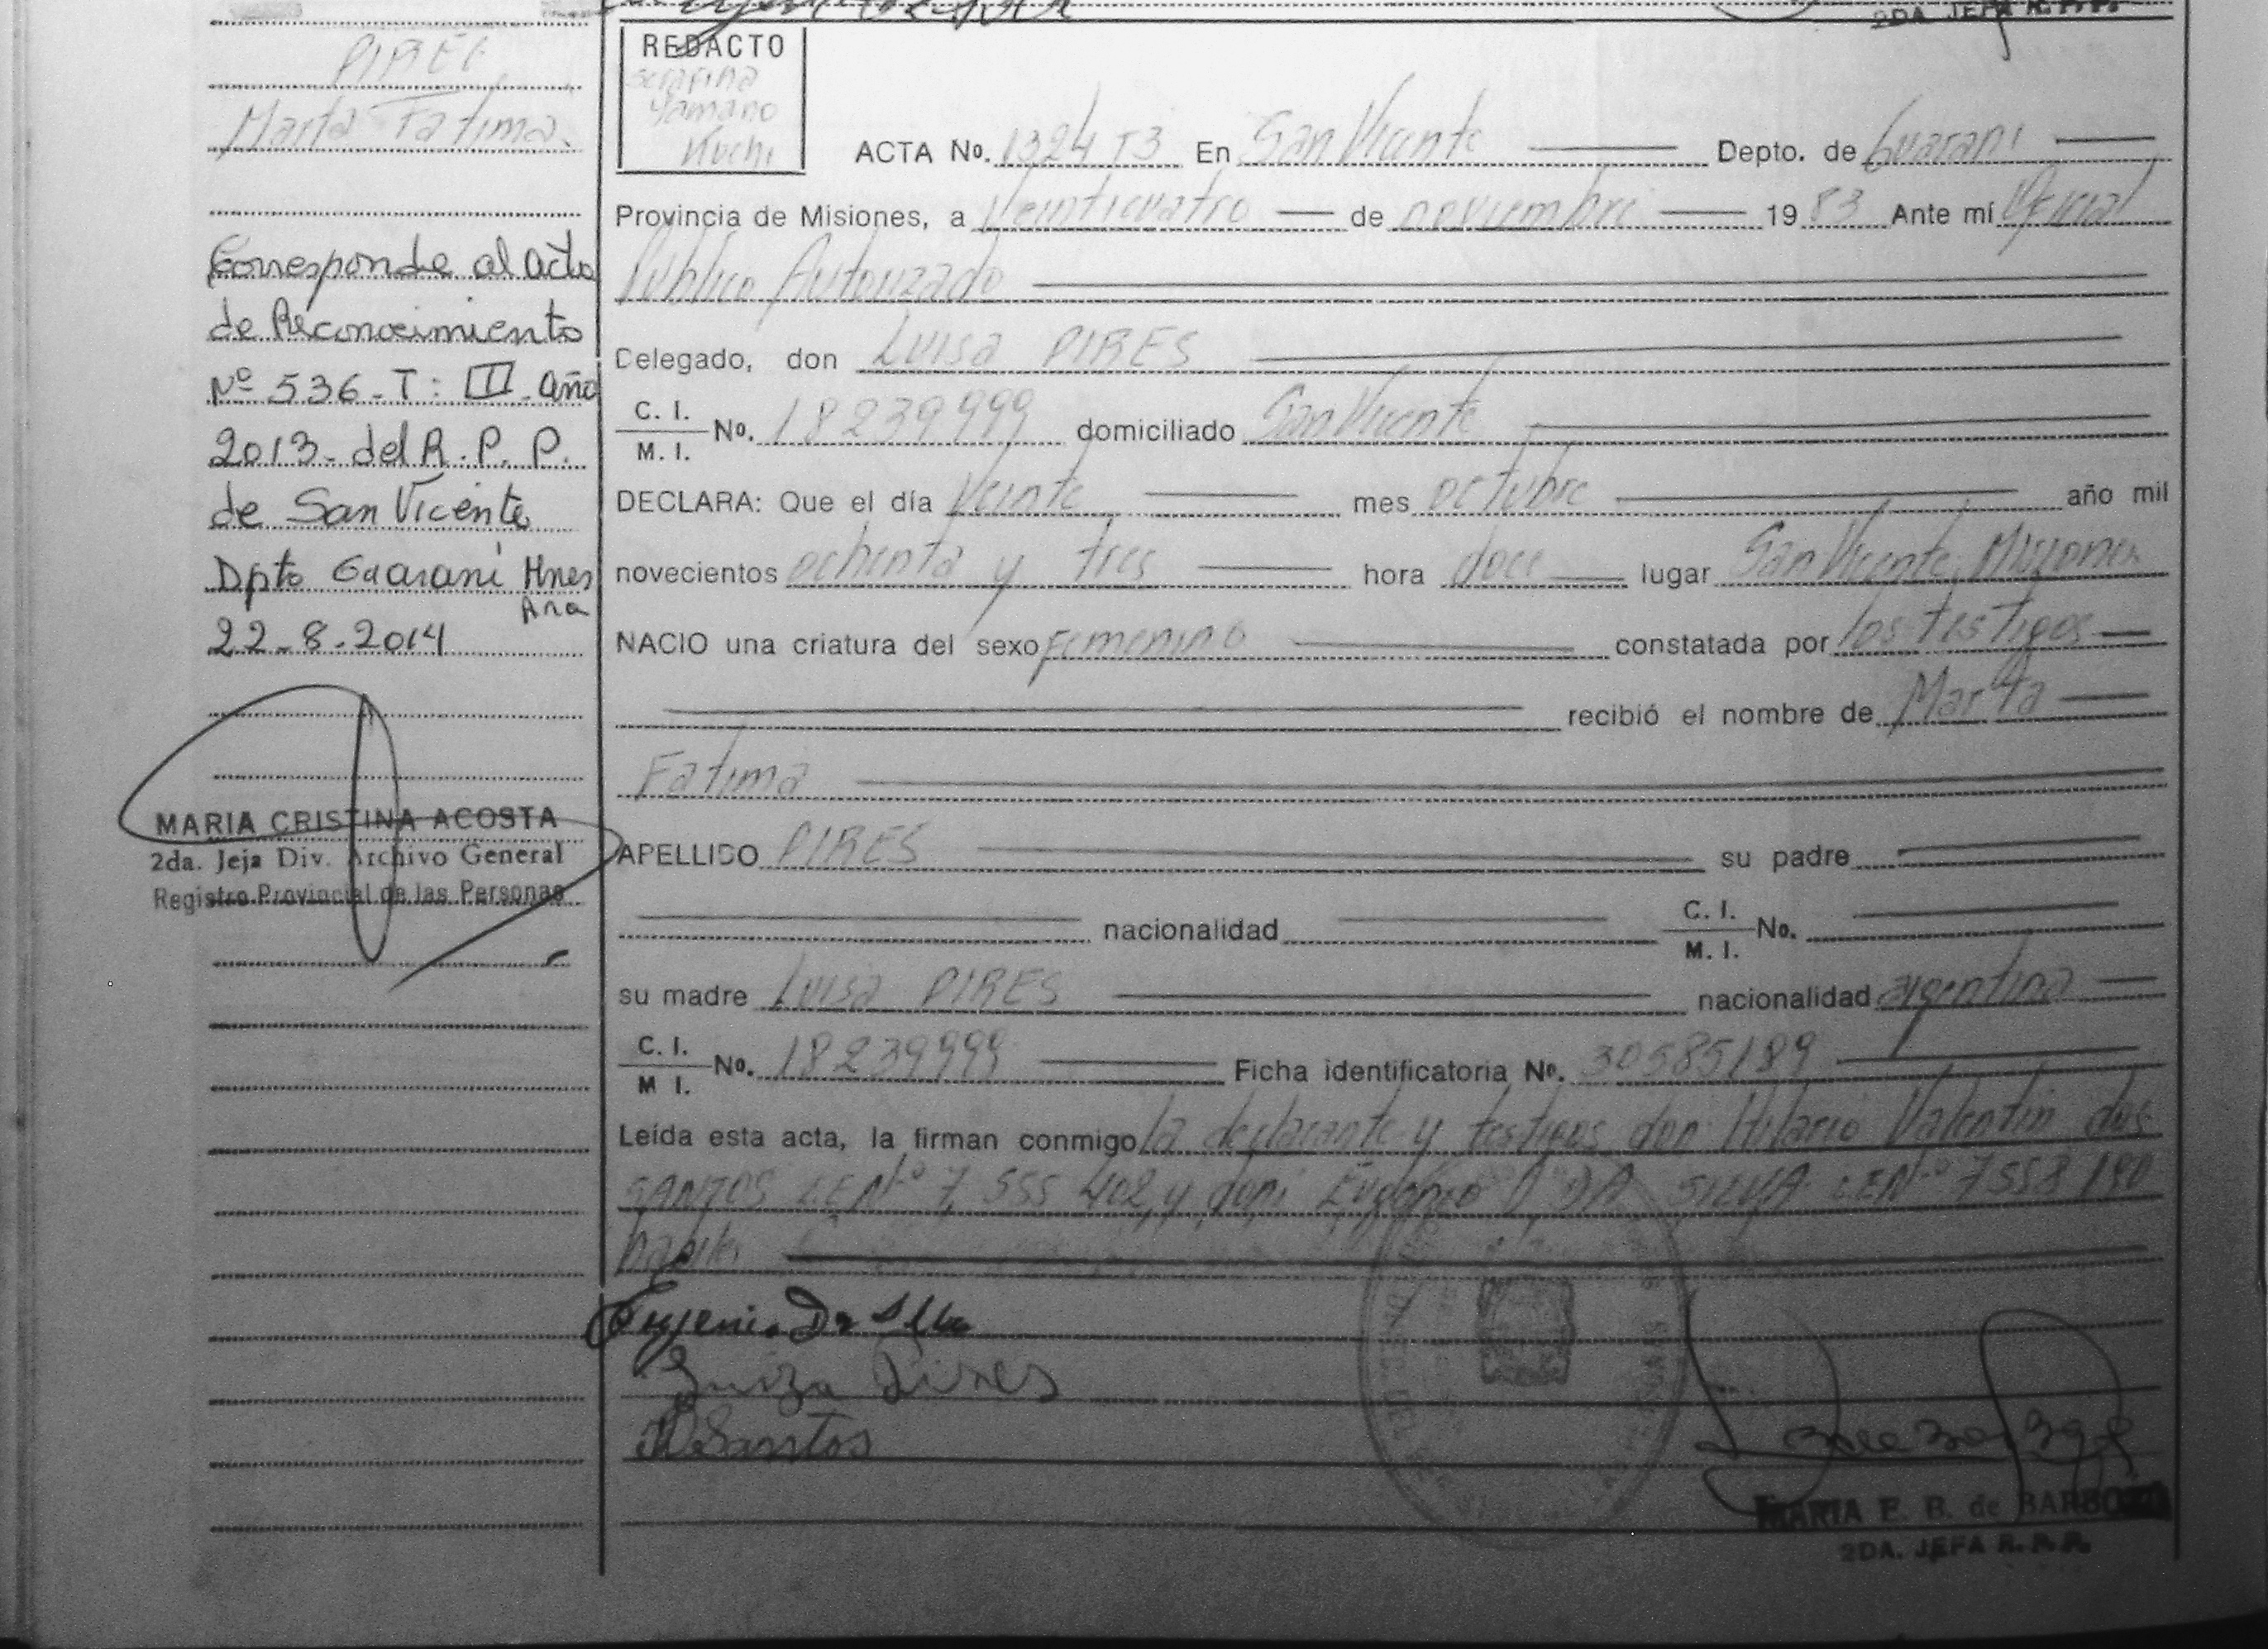 2DA JEFA R. P. P.
PIRES
Marta Fatima
Corresponde al acta
de Reconocimiento
Nº 536-T: III-año
2013-del R.P.P.
de San Vicente
Dpto Guaraní Mnes
Ana
22-8-2014
MARIA CRISTINA ACOSTA
2da. Jeja Div. Archivo General
Registro Provincial de las Personas
REDACTO
Serafina
Yamano
Kuchi
ACTA No. 1324 T3 En San Vicente Depto. de Guarani
Provincia de Misiones, a Veinticuatro de noviembre 1983 Ante mí Oficial
Publico Autorizado
Delegado, don Luisa PIRES
C. I.
M. I. No. 18239999 domiciliado San Vicente
DECLARA: Que el día Veinte mes octubre año mil
novecientos ochenta y tres hora doce lugar San Vicente, Misiones
NACIO una criatura del sexo Femenino constatada por los testigos
recibió el nombre de Marta
Fatima
APELLIDO PIRES su padre
nacionalidad C. I.
M. I. No.
su madre Luisa PIRES nacionalidad argentina
C. I.
M I. No. 18239999 Ficha identificatoria No. 30585189
Leída esta acta, la firman conmigo la declarante y testigos don Hilario Valentin dos
SANTOS LE Nº 7 555 402 y don Eugenio DA SILVA LE Nº 7558190
Eugenio Da Silva
Luiza Pires
Santos
MARIA E. B. de BARBOZA
2DA. JEFA R. P. P.